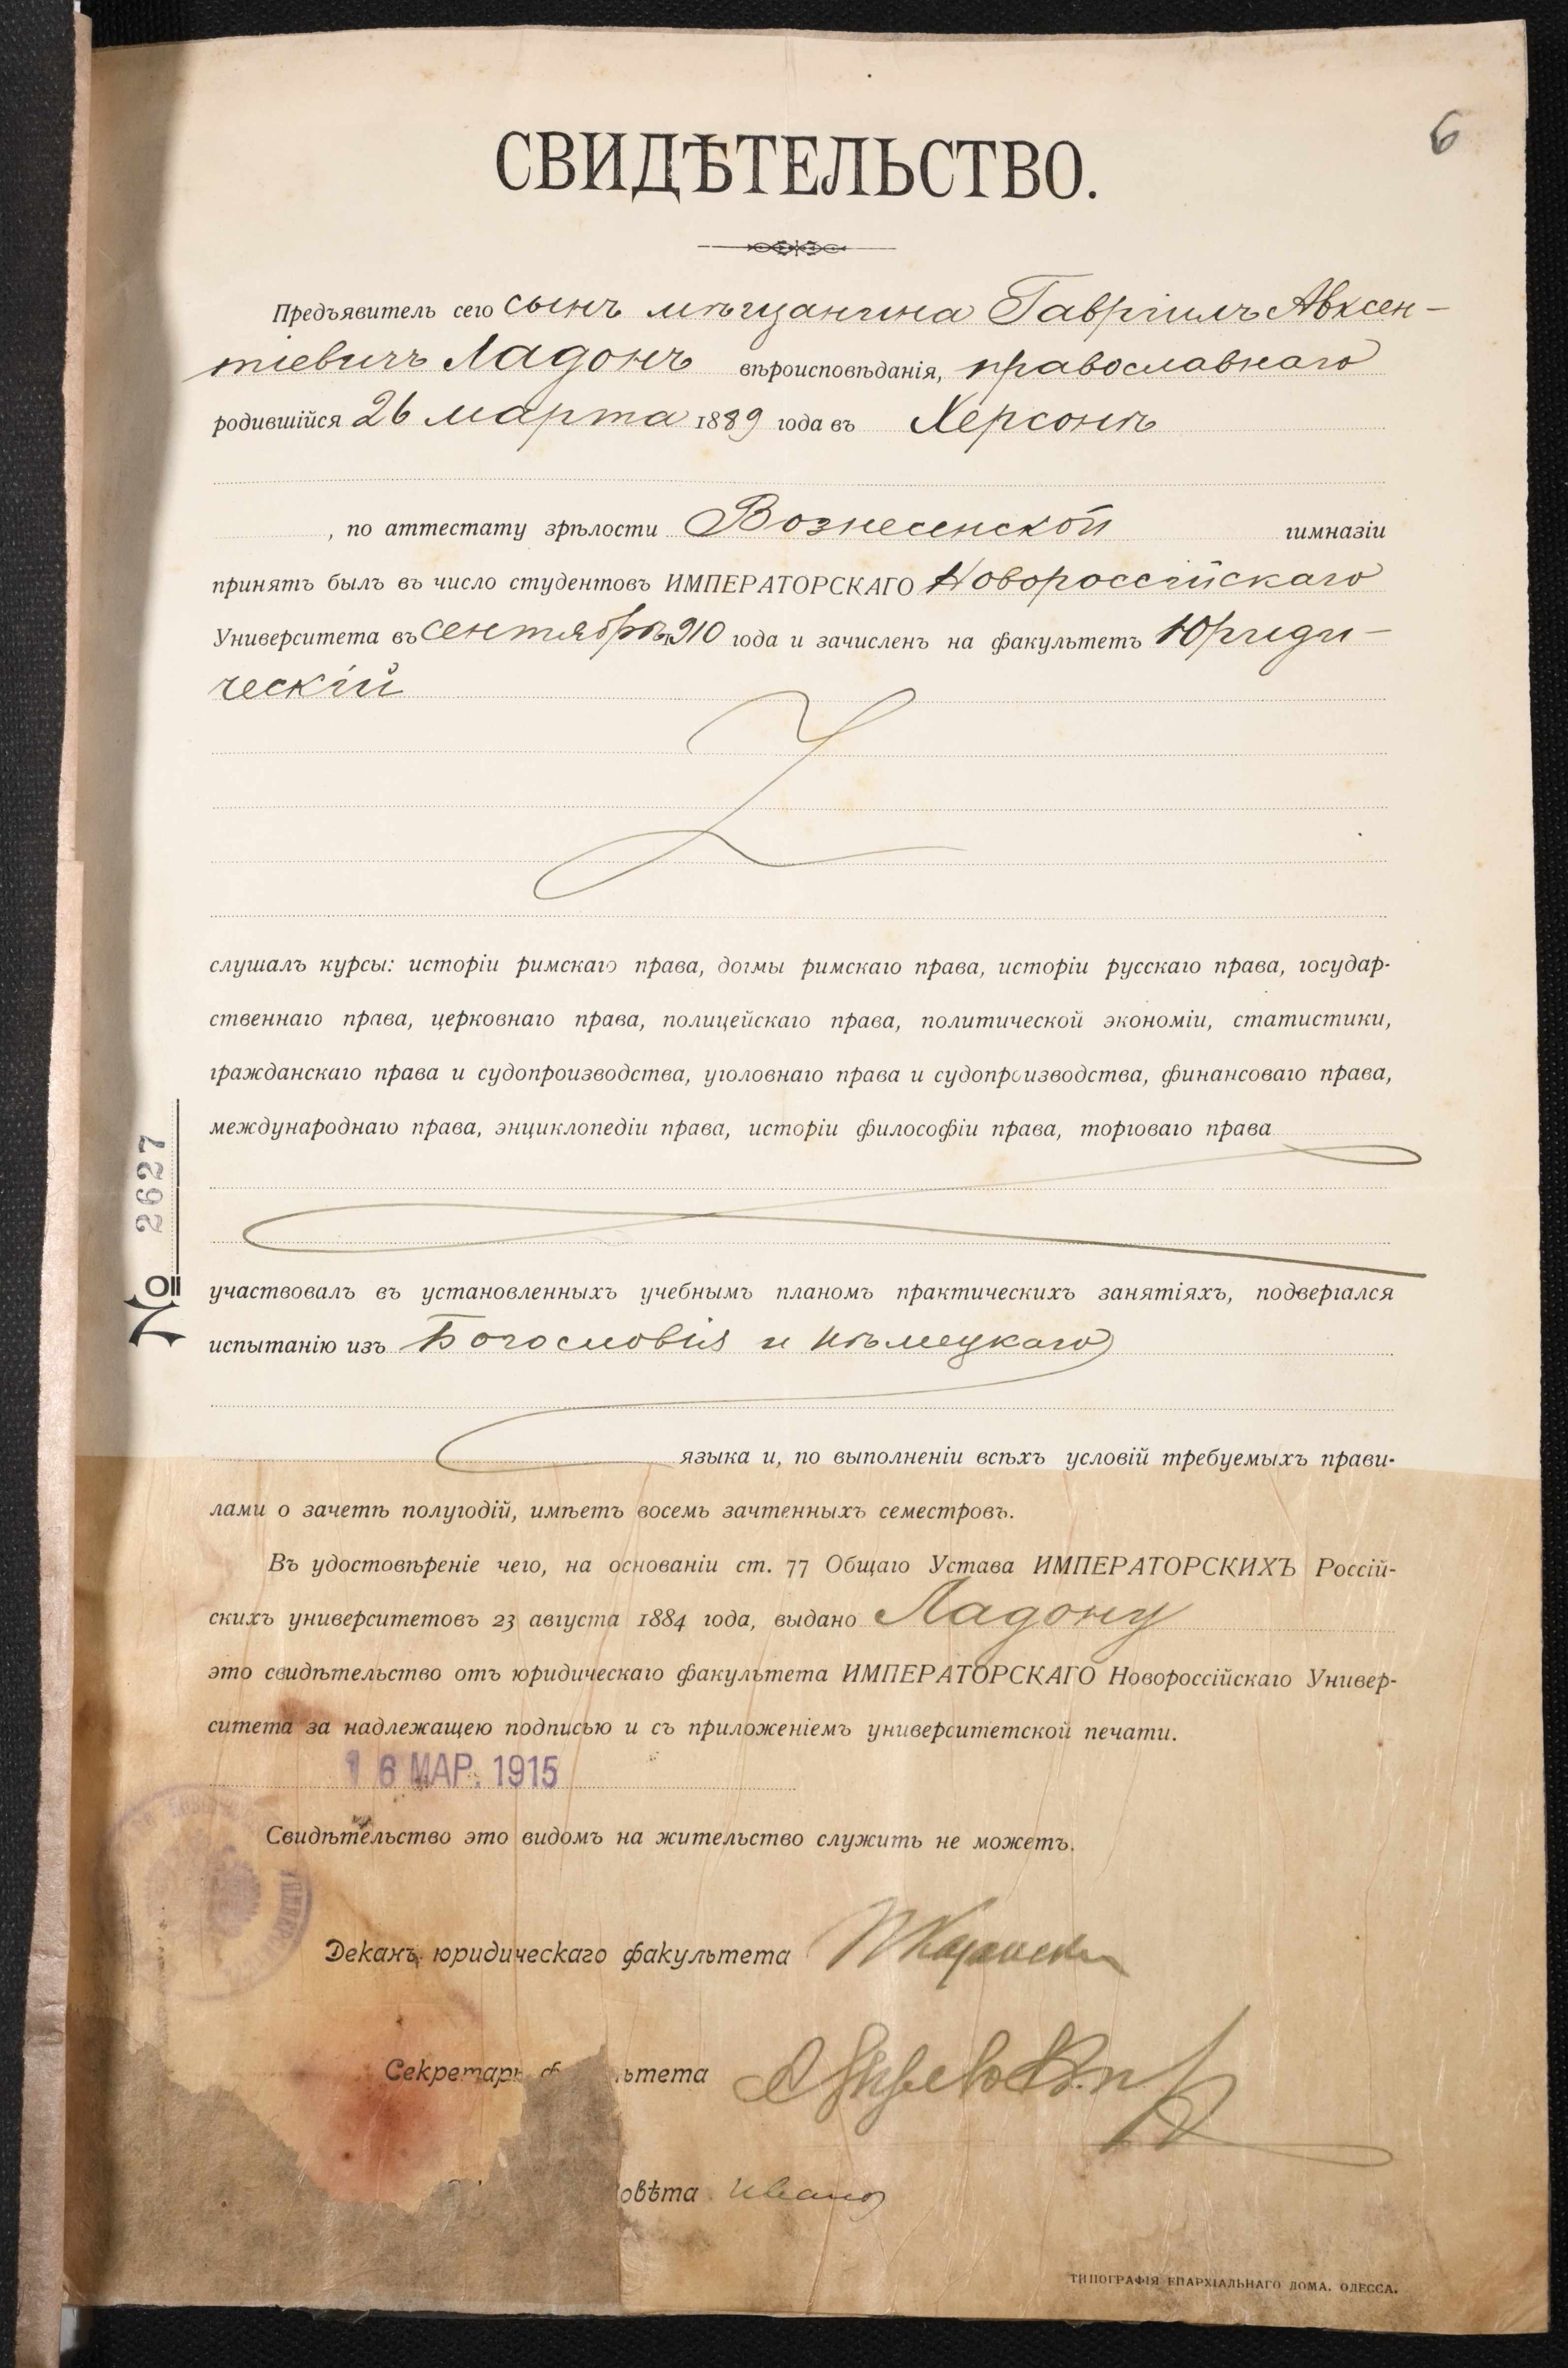 6
СВИДѢТЕЛЬСТВО.
Предъявитель сего сынъ мѣщанина Гавріилъ Авксен-
тіевичъ Ладонъ вѣроисповѣданія, православнаго
родившійся 26 марта 1889 года въ Херсонѣ
, по аттестату зрѣлости Вознесенской гимназіи
принятъ былъ въ число студентовъ ИМПЕРАТОРСКАГО Новороссійскаго
Университета въ сентябрѣ 1910 года и зачисленъ на факультетъ Юриди-
ческій
слушалъ курсы: исторіи римскаго права, догмы римскаго права, исторіи русскаго права, государ-
ственнаго права, церковнаго права, полицейскаго права, политической экономіи, статистики,
гражданскаго права и судопроизводства, уголовнаго права и судопроизводства, финансоваго права,
международнаго права, энциклопедіи права, исторіи философіи права, торговаго права
№ 2627
участвовалъ въ установленныхъ учебнымъ планомъ практическихъ занятіяхъ, подвергался
испытанію изъ Богословія и нѣмецкаго
языка и, по выполненіи всѣхъ условій требуемыхъ прави-
лами о зачетѣ полугодій, имѣетъ восемь зачтенныхъ семестровъ.
Въ удостовѣреніе чего, на основаніи ст. 77 Общаго Устава ИМПЕРАТОРСКИХЪ Россій-
скихъ университетовъ 23 августа 1884 года, выдано Ладону
это свидѣтельство отъ юридическаго факультета ИМПЕРАТОРСКАГО Новороссійскаго Универ-
ситета за надлежащею подписью и съ приложеніемъ университетской печати.
16 МАР. 1915
Свидѣтельство это видомъ на жительство служить не можетъ.
Деканъ юридическаго факультета
Секретарь ф ьтета
овѣта
ТИПОГРАФІЯ ЕПАРХІАЛЬНАГО ДОМА. ОДЕССА.